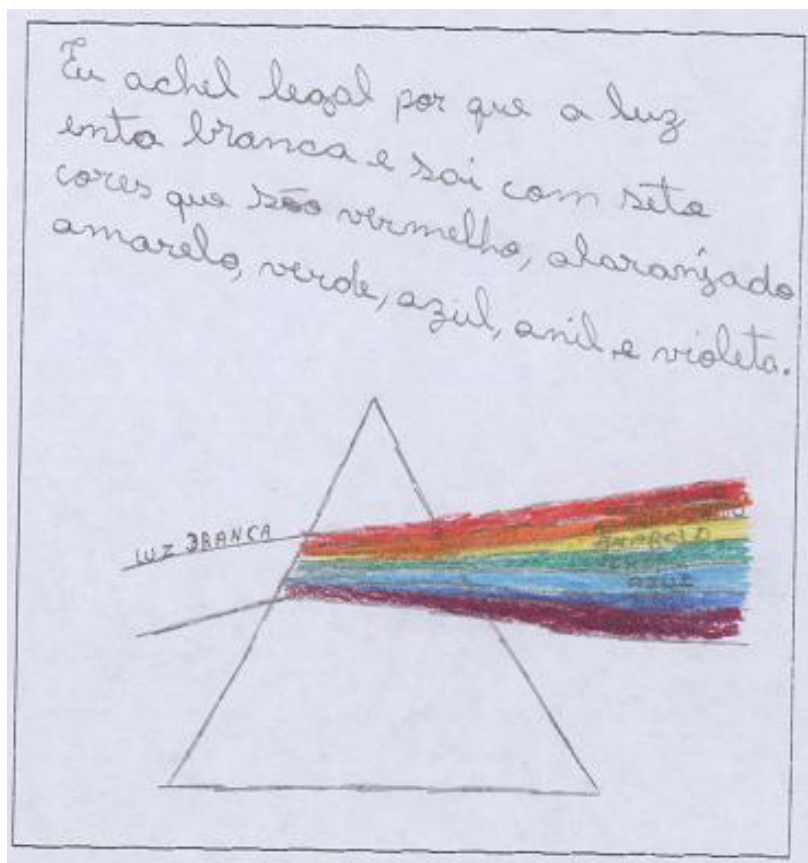 Eu achei legal por que a luz
enta branca e sai com sete
cores que são vermelho, alaranjado
amarelo, verde, azul, anil, e violeta.
LUZ BRANCA
AMARELO
VERDE
AZUL